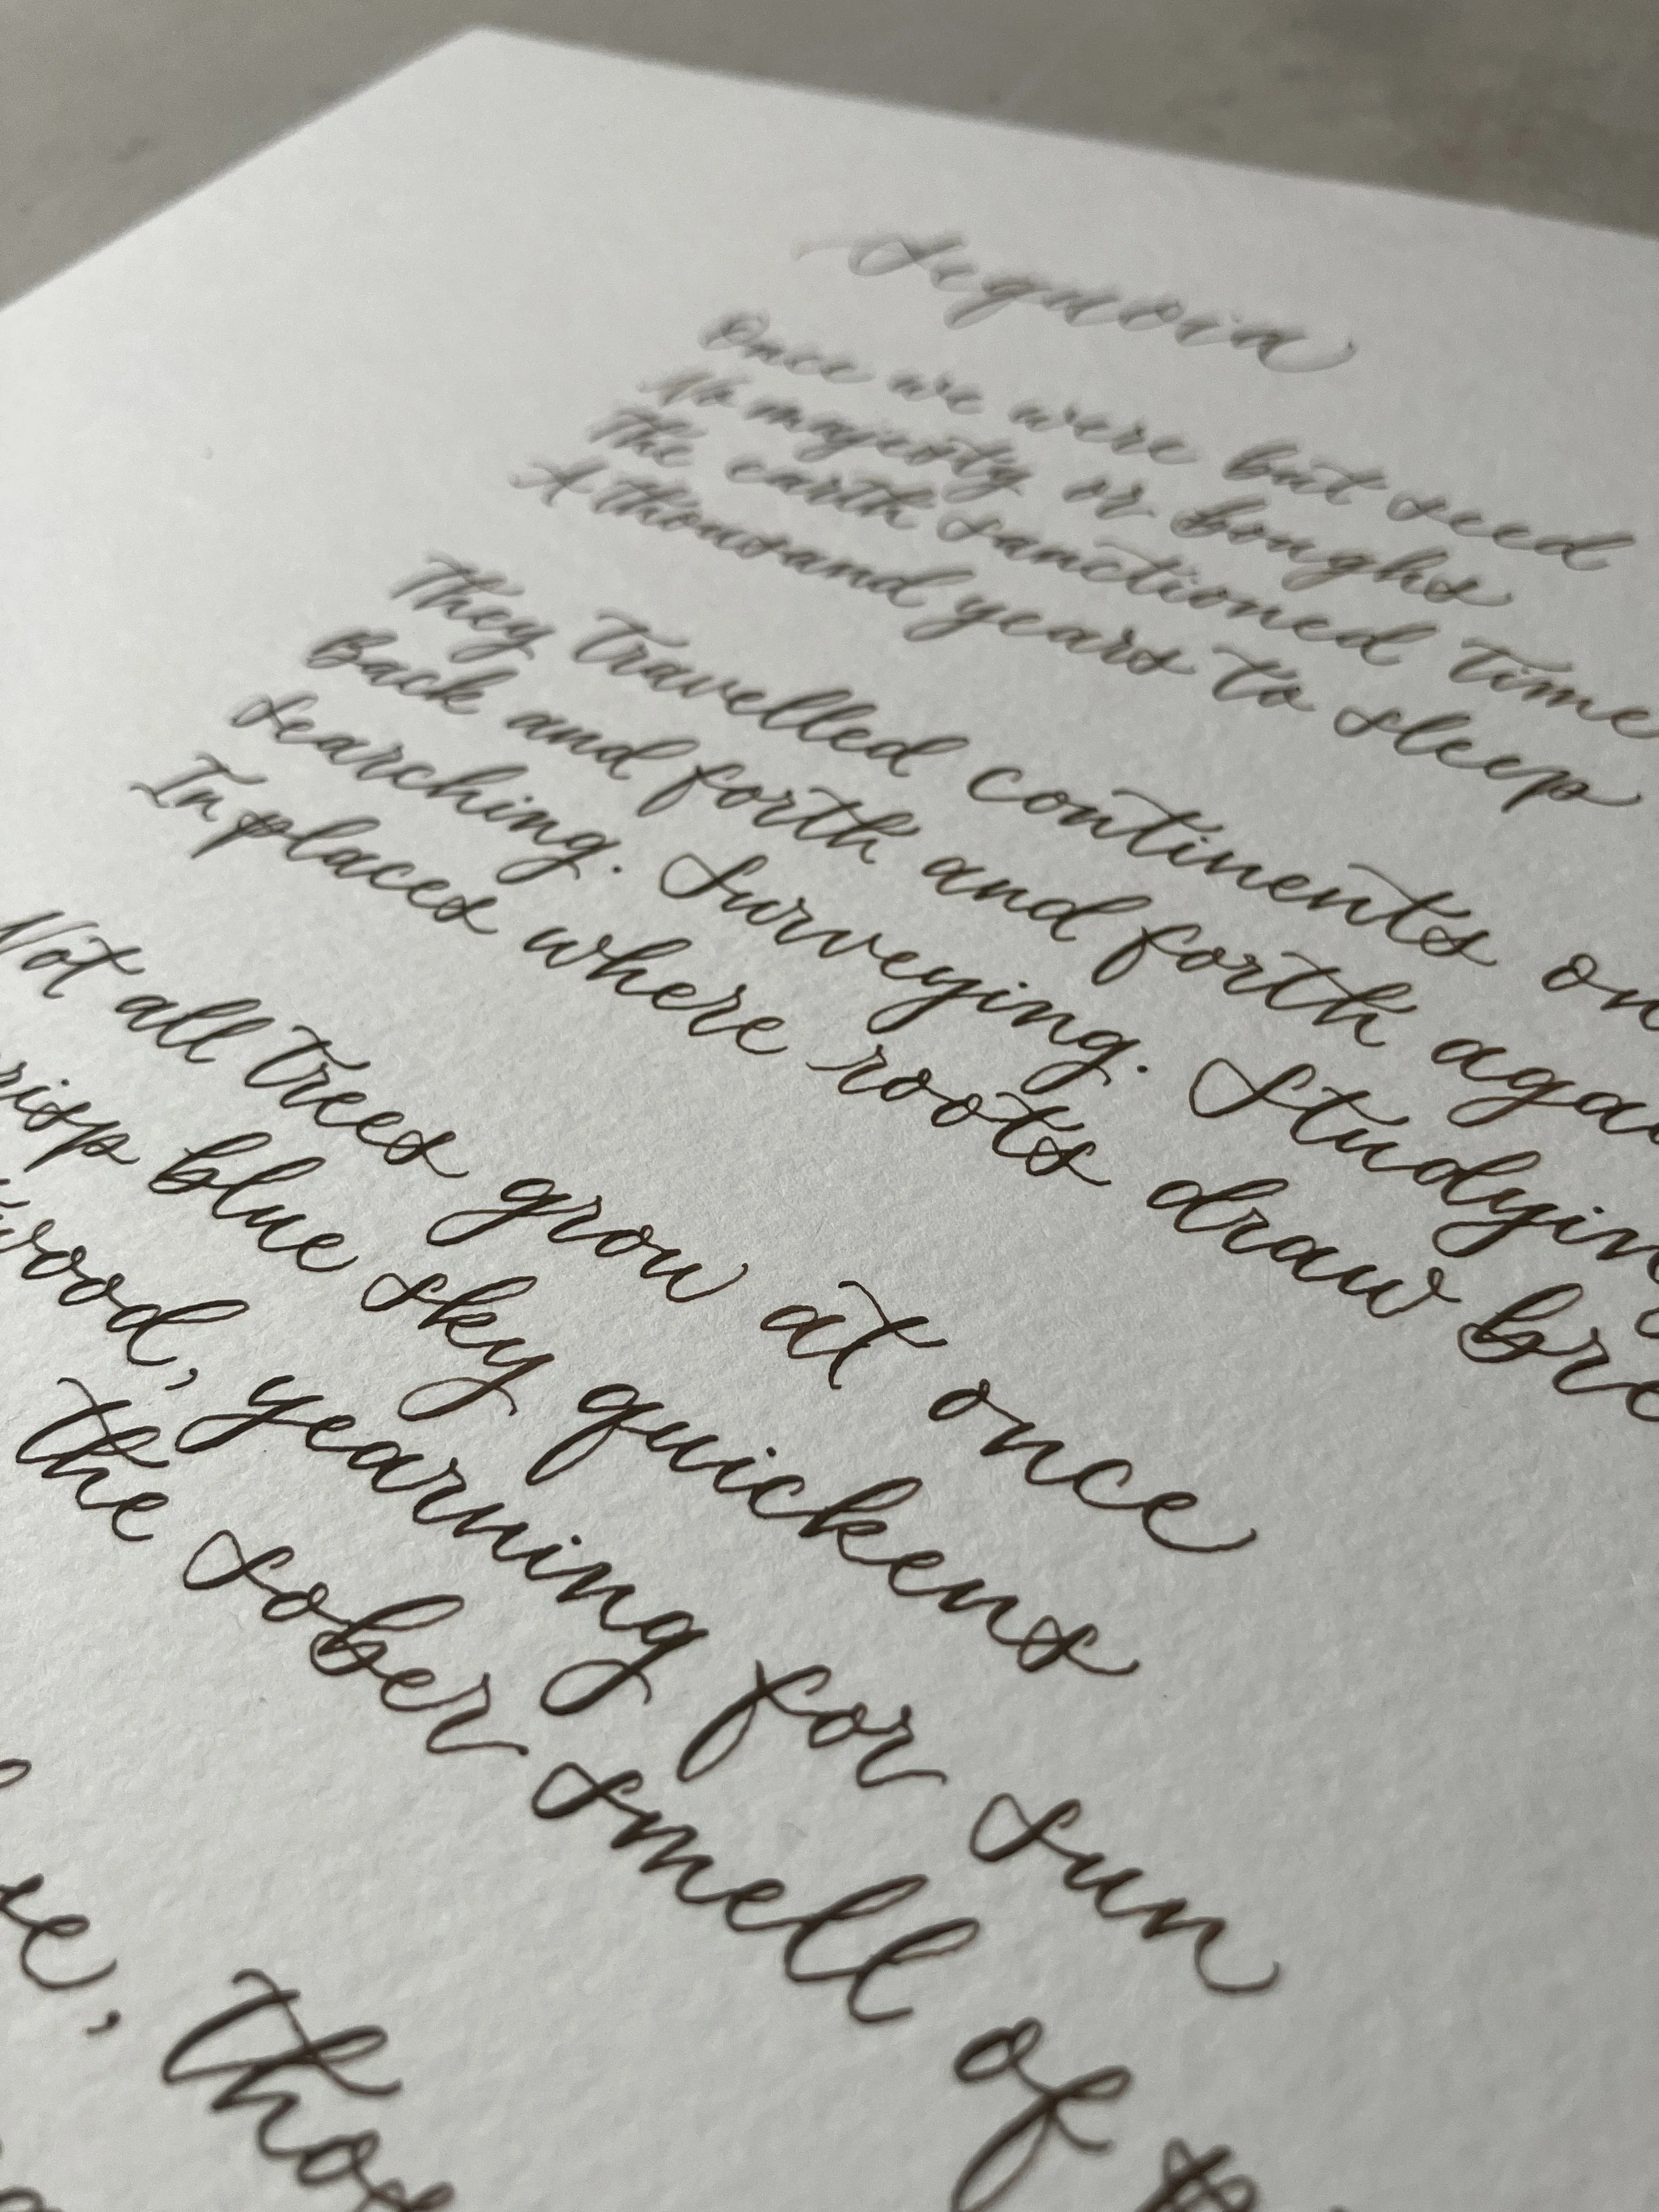 Sequoia
Once we were but seed
No majesty or boughs
The earth sanctioned time
A thousand years to sleep
They travelled continents on
Back and forth and forth aga
Searching. Surveying. Studying
In places where roots draw bre
Not all trees grow at once
risp blue sky quickens
wood, yearning for sun
the sober smell of
se, thos